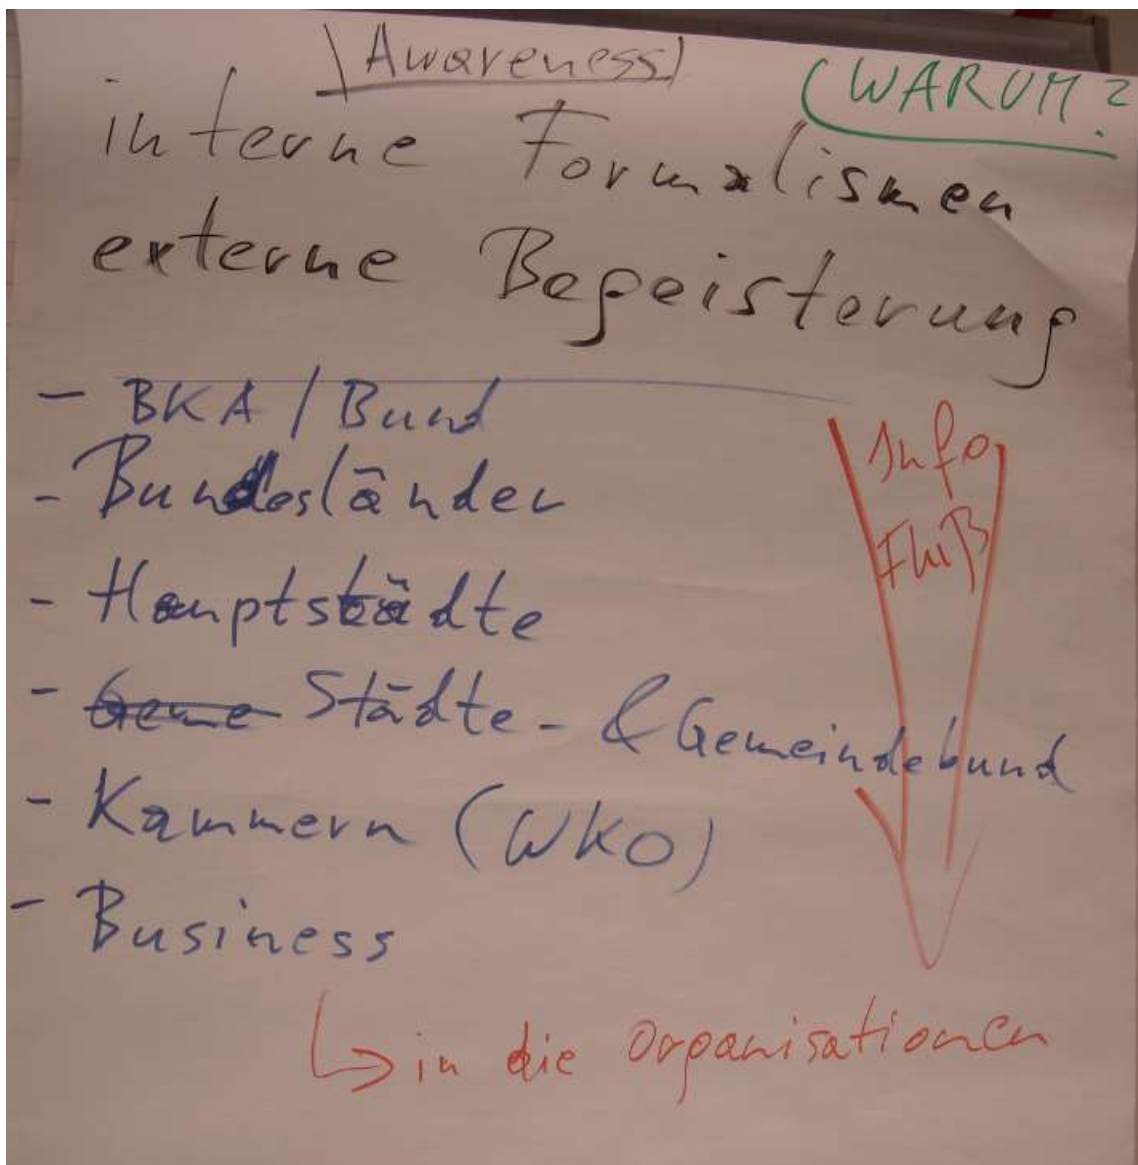 Awareness
(WARUM?
interne Formalismen
externe Begeisterung
- BKA / Bund
- Bundesländer
- Hauptstädte
- Geme Städte- & Gemeindebund
- Kammern (WKO)
- Business
Info
Fluß
↳ in die Organisationen